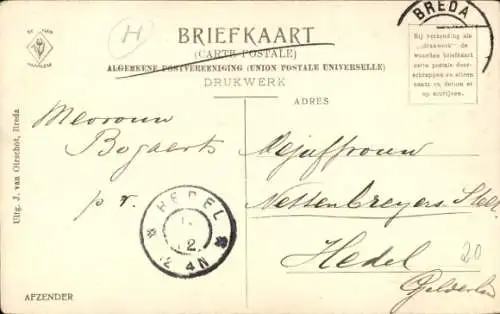 H
BRIEFKAART
(CARTE POSTALE)
ALGEMEENE POSTVEREENIGING (UNION POSTALE UNIVERSELLE)
DRUKWERK
BREDA
Bij verzending als
„drukwerk" de
woorden briefkaart
carte postale door-
schrappen en alleen
naam en datum er
op schrijven.
HAARLEM
Uitg. J. van Oirschot, Breda
Mevrouw
Bogaerts
p. r.
HEDEL
12
4N
AFZENDER
ADRES
Mejuffrouw
Hedel
20
Gelderland